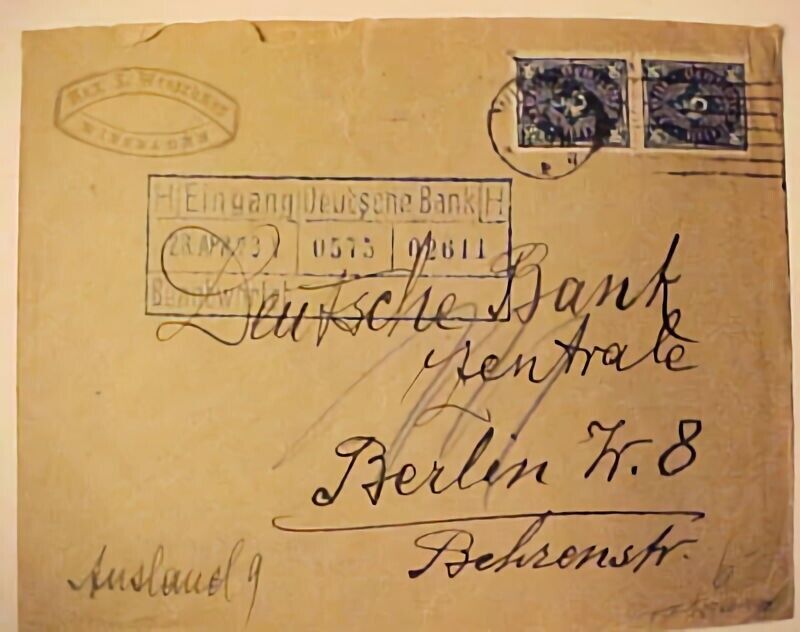 WIESBADEN
H Eingang Deutsche Bank H
28.APR.23 0575 02611
Beantwortet
Deutsche Bank
Zentrale
Berlin W. 8
Behrenstr.
Ausland 9